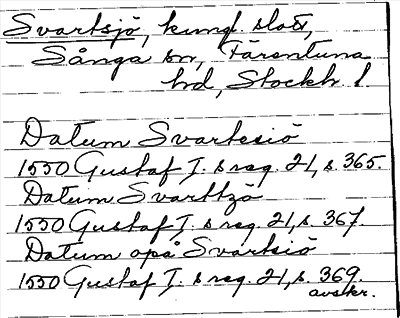 Svartsjö, kungl. slott,
Sånga sn, Färentuna
hd, Stockh. l
Datum Svartesiö
1550 Gustaf I:s reg. 21, s. 365.
Datum Svarttzö
1550 Gustaf I:s reg. 21, s. 367.
Datum opå Svartsiö
1550 Gustaf I:s reg. 21, s. 369.
avskr.